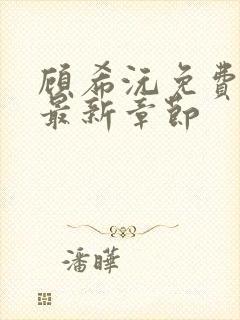 顾希沅免费
最新章節
潘曄